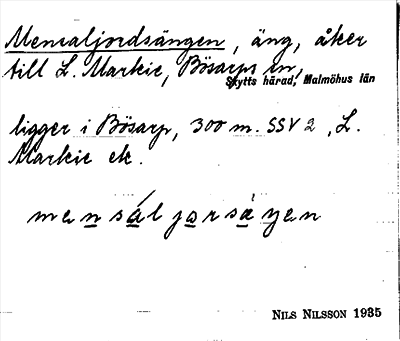 Mensaljordsängen, äng, åker
till L. Markie, Bösarps sn,
Skytts härad, Malmöhus län
ligger i Bösarp, 300 m. SSV 2, L.
Markie ek.
mensáljorsàŋen
NILS NILSSON 1935